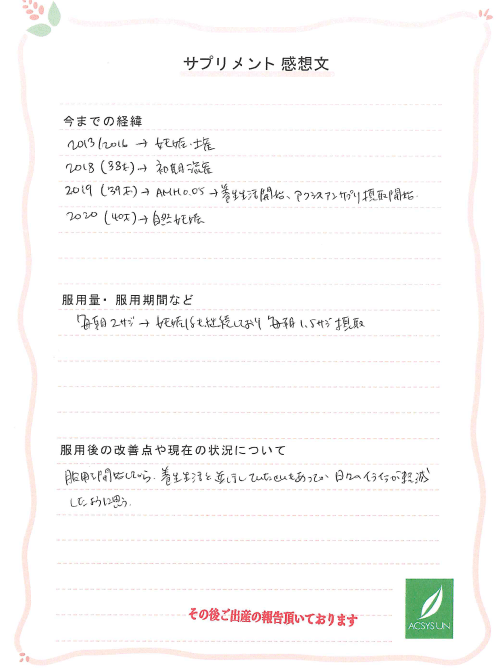 サプリメント 感想文
今までの経緯
2013/2016 → 妊娠・出産
2018 (38才) → 初期流産
2019 (39才) → AMH0.05 → 養生生活開始、アクシスアンサプリ摂取開始.
2020 (40才) → 自然妊娠
服用量・服用期間など
毎日2サジ → 妊娠後も継続しており 毎日1.5サジ摂取
服用後の改善点や現在の状況について
服用を開始してから、養生生活と並行していたせいもあってか 日々のイライラが軽減
したように思う.
その後ご出産の報告頂いております
ACSYSUN